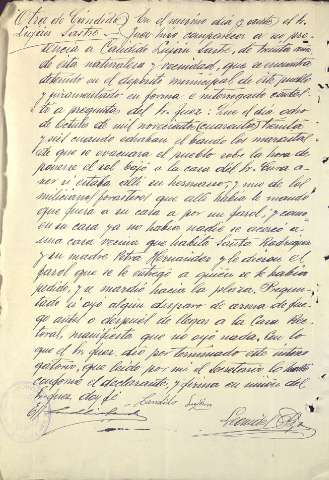 Otra de Candido En el mismo dia y ante el Sr.
Luján Sastre.- Juez hizo comparecer a su pre-
sencia a Candido Luján Sastre, de treinta años
de esta naturaleza y vecindad, que se encuentra
detenido en el deposito municipal de este pueblo
y juramentado en forma e interrogado contes-
tó a preguntas del Sr. Juez: Que el dia ocho
de Octubre de mil novecientos (cuarenta) treinta
y seis cuando echaban el bando los marxistas
de que se evacuara el pueblo sobre la hora de
ponerse el sol bajó a la casa del Sr. Cura a
ver si estaba alli su hermano; y uno de los
milicianos forasteros que alli habia le mandó
que fuera a su casa a por un farol, y como
en su casa ya no habia nadie se acercó a
una casa vecina que habita Santa Rodriguez
y su madre Petra Hernandez y le dieron el
farol que se lo entregó a quien se lo habia
pedido, y se marchó hacia la plaza. Pregun-
tado si oyó algun disparo de arma de fue-
go antes o despues de llegar a la Casa Rec-
toral, manifiesta que no oyó nada. Con lo
que el Sr. Juez dió por terminado este interro-
gatorio, que leido por mi el Secretario lo halló
conforme el declarante, y firma en union del
Sr. Juez doy fé.
Candido Luján